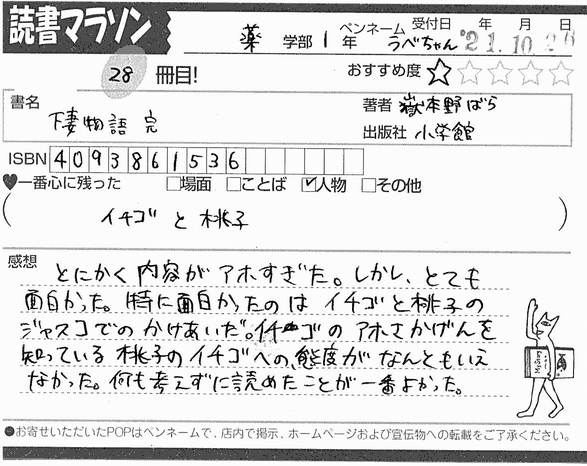 読書マラソン
薬 学部 1 年 ペンネーム うべちゃん 受付日 年 月 日
'21.10.26
28 冊目! おすすめ度 ☆☆☆☆☆
書名 下妻物語 完
著者 嶽本野ばら
出版社 小学館
ISBN 4093861536
♥一番心に残った □場面 □ことば ☑人物 □その他
( イチゴ と 桃子 )
感想
とにかく 内容が アホすぎた。しかし、とても
面白かった。特に面白かったのは イチゴと桃子の
ジャスコでの かけあいだ。イチゴの アホさかげんを
知っている 桃子のイチゴへの、態度が なんともいえ
なかった。何も考えずに読めたことが一番よかった。
●お寄せいただいたPOPはペンネームで、店内で掲示、ホームページおよび宣伝物への転載をご了承ください。